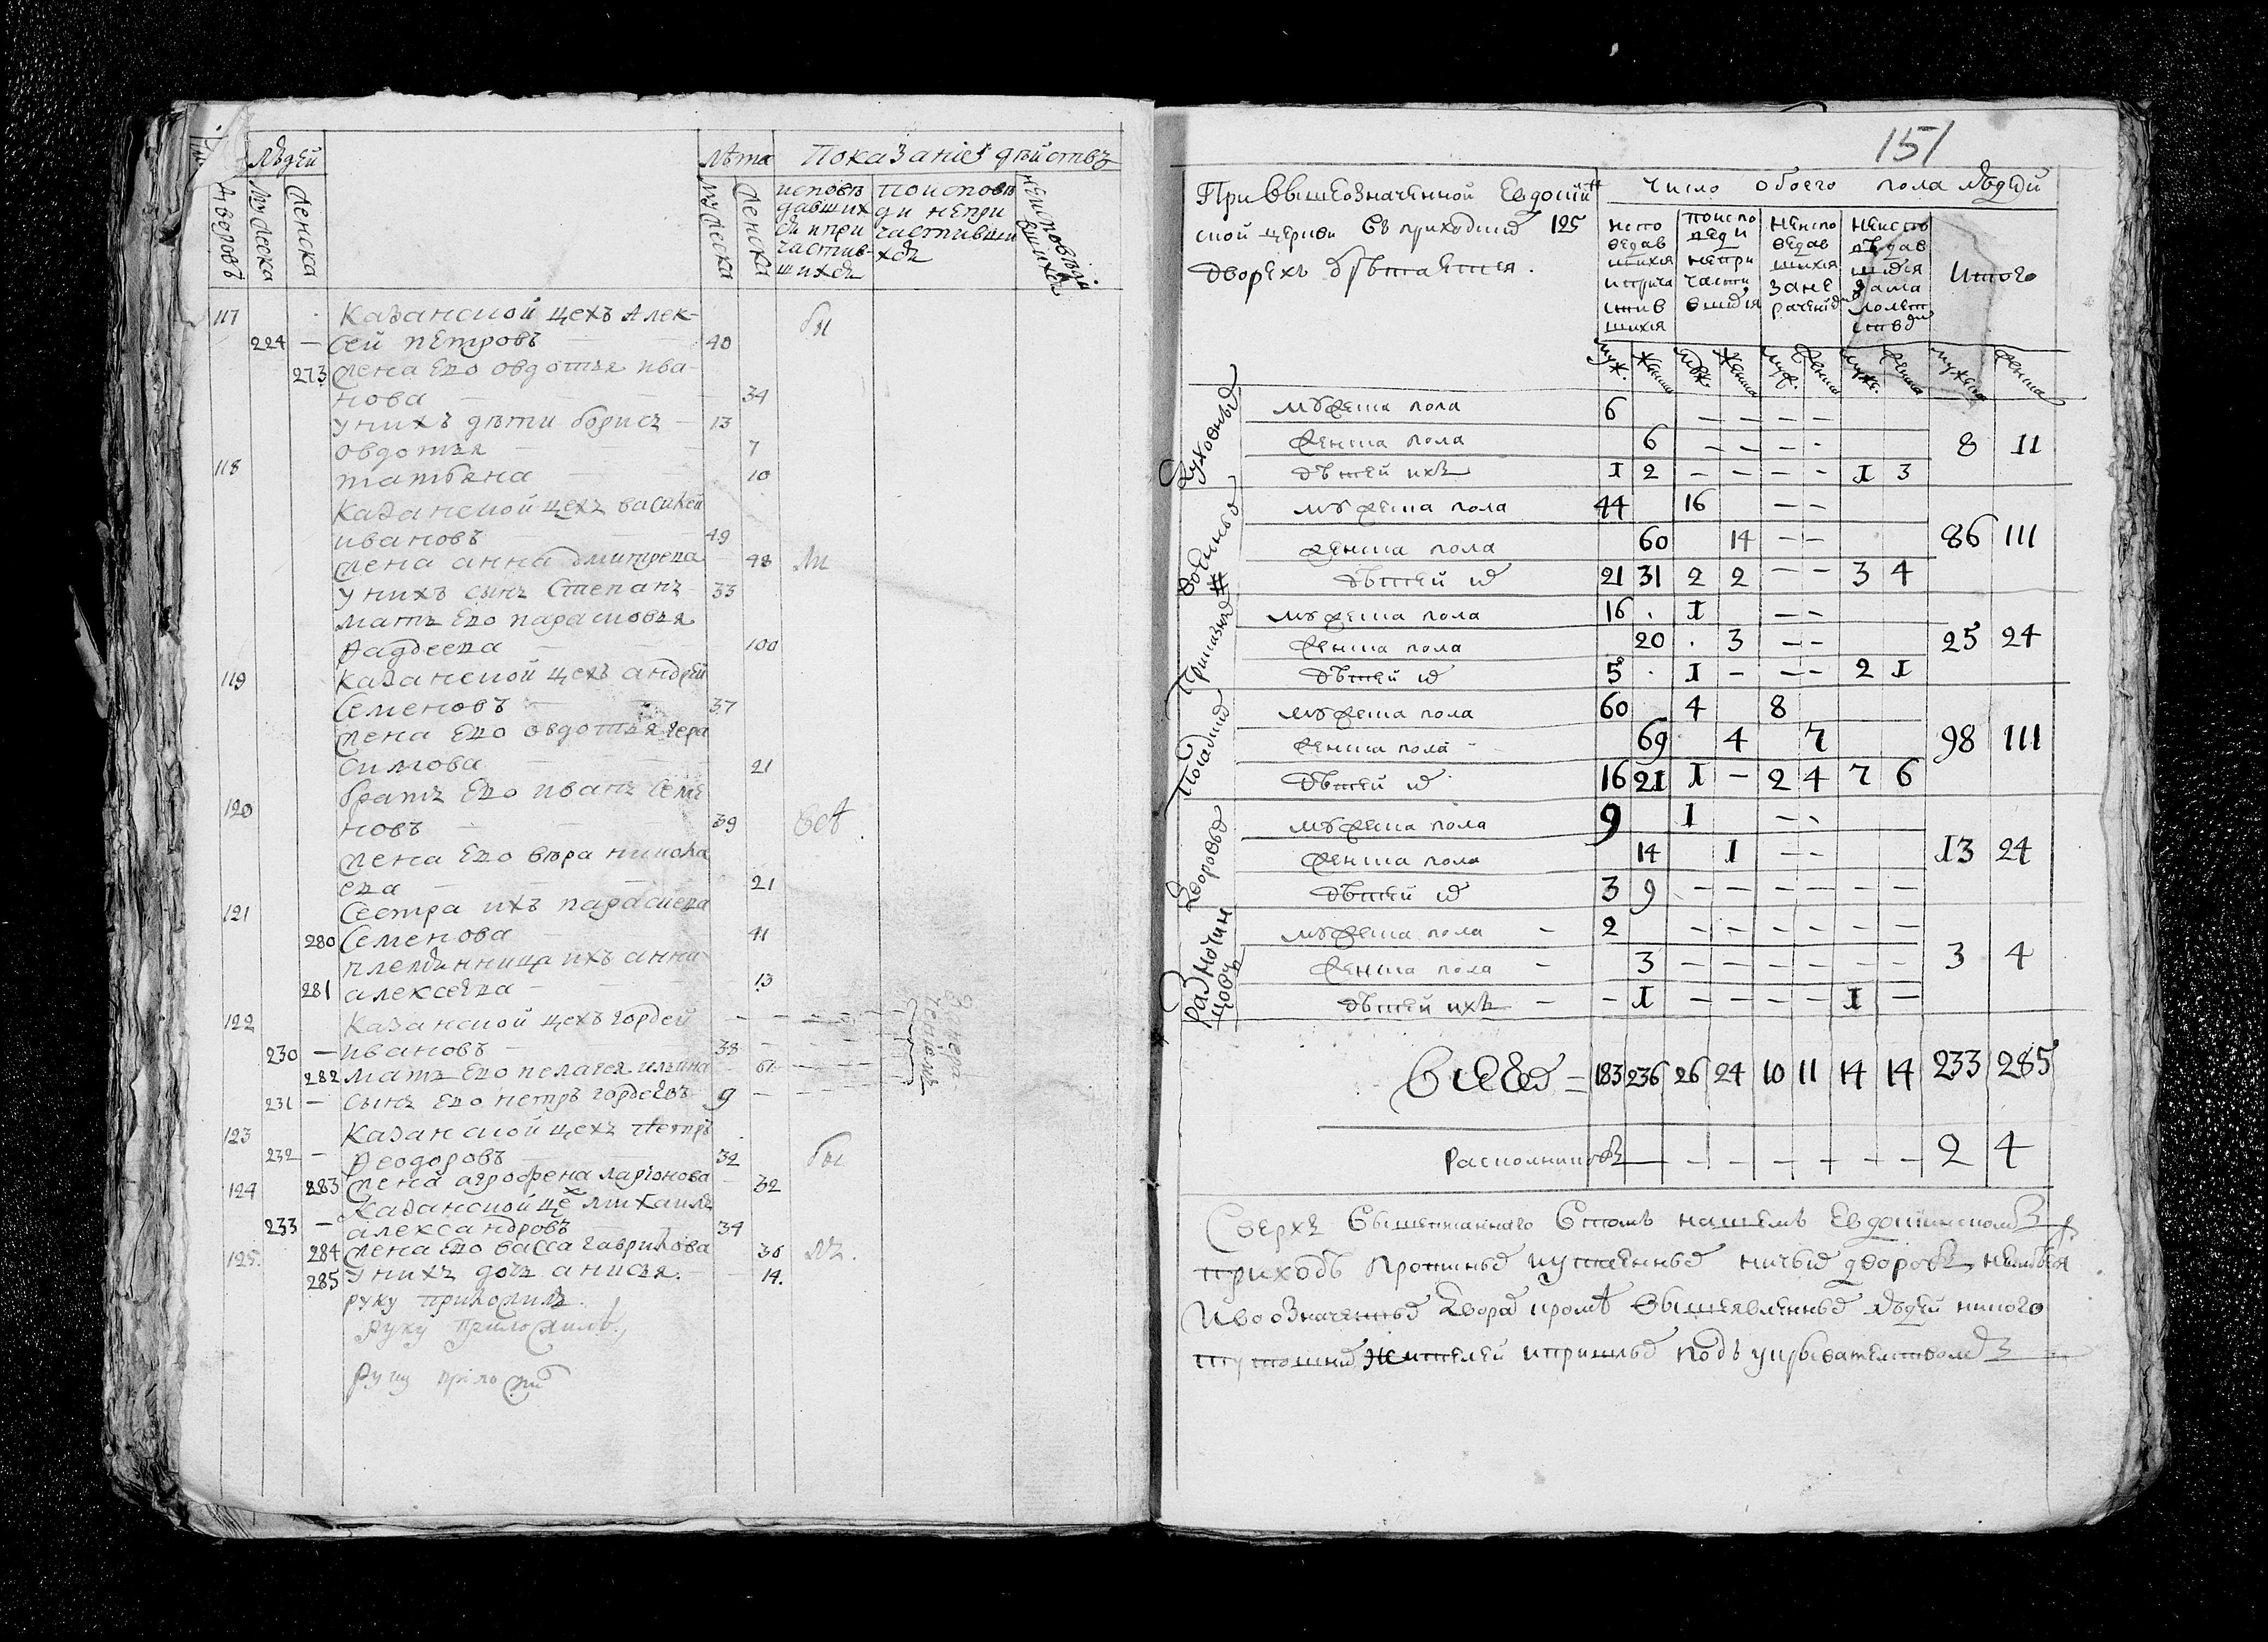 людей
лѣта Показаніе дѣйствъ
дворовъ мужеска женска мужеска женска
исповѣдавших
ся и при
частив-
шихся
по исповѣ
ди непри
частивши
хся
неисповѣда
вшихся
117 Казанской цехъ Алек-
224 — сей петровъ 40 бы
273 жена Его овдотья ива-
нова 34
у нихъ дѣти борисъ 13
овдотья 7
118 татьяна 10
Казанской цехъ василей
ивановъ 49
жена анна дмитреева 48 ли
у нихъ сынъ Степанъ 33
мать Его парасковья
Фадеева 100
119 Казанской цехъ андрей
Семеновъ 37
жена Его овдотья гера
симова 21
братъ Его иванъ Семе
120 новъ 39 всѣ
жена Его вѣра никола
ева 21
121 Сестра ихъ парасковья
280 Семенова 41
племянница ихъ анна
281 алексѣева 13
122 Казанской цехъ гордей
230 — ивановъ 38
282 мать Его пелагея ильина 61
231 — сынъ Его петръ гордеевъ 9
за нера
ченіемъ
123 Казанской цехъ петръ
232 — Феодоровъ 32 бы
124 283 жена агрофена ларіонова 32
Казанской цехъ михаила
233 — александровъ 34
125. 284 жена Его васса гаврилова 36 лъ.
285 у нихъ дочь анисья. 14.
руку приложилъ.
руку приложилъ,
руку приложи
151
При Ввышеозначенной Евдокіи
ской церкви въ приходкихъ 125
дворехъ обрѣтается.
число обоего пола людей
испо
ведав
шихся
и прича
стив
шихся
по испо
веди
непри
части
вшихся
неиспо
ведав
шихся
за не
раченіемъ
неиспо
вѣдав
шихся
за мало
лѣтствомъ
Итого
муж. женска муж. женска муж. женска муж. женска мужеска женска
Духовныхъ
мужеска пола 6 — — — —
женска пола 6 — — — — 8 11
дѣтей ихъ 1 2 — — — — 1 3
военныхъ
мужеска пола 44 16 — —
женска пола 60 14 — — 86 111
дѣтей их 21 31 2 2 — — 3 4
Приказныхъ
мужеска пола 16 . 1 — —
женска пола 20 . 3 — — 25 24
дѣтей их 5 . 1 — — — 2 1
Посадкихъ
мужеска пола 60 4 8
женска пола 69 4 7 98 111
дѣтей их 16 21 1 — 2 4 7 6
Дворовыхъ
мужеска пола 9 1 — —
женска пола 14 1 — — 13 24
дѣтей их 3 9 — — — — — —
Разночин
цовъ
мужеска пола — 2 — — — — — —
женска пола — 3 — — — — — — 3 4
дѣтей ихъ — — 1 — — — — 1 —
Всѣхъ — 183 236 26 24 10 11 14 14 233 285
Расколниковъ — — — — — — — 2 4
Сверхъ Вышеписаннаго Втомъ нашемъ Евдокиинскомъ
приходѣ Протчихъ пустыхъ ничьихъ дворовъ, неимѣется
Ивоозначенныхъ Дворахъ кромѣ Вышеявленныхъ людей никого
тутошнихъ Жителей ипришлыхъ подъ укрывателствомъ